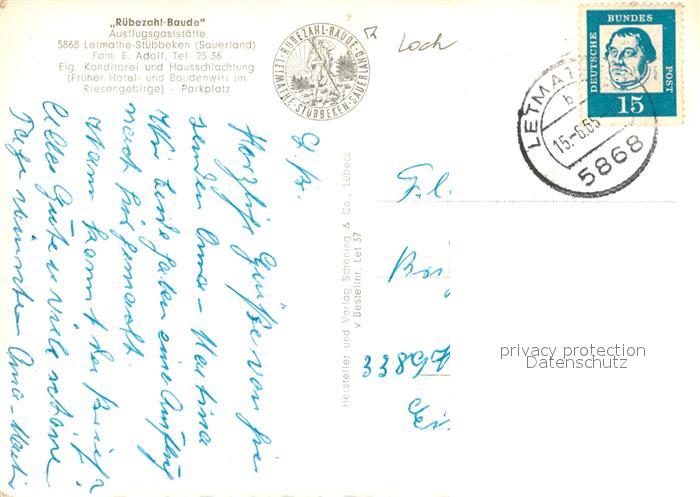 „Rübezahl-Baude"
Ausflugsgaststätte
5868 Letmathe-Stübbeken (Sauerland)
Fam. E. Adolf, Tel. 25 36
Eig. Konditorei und Hausschlachtung
(Früher Hotel- und Baudenwirt im
Riesengebirge) - Parkplatz
RÜBEZAHL-BAUDE
LETMATHE-STÜBBEKEN-SAUERLAND
Loch
DEUTSCHE BUNDESPOST
15
LETMATHE
b
15.-6.65
5868
Herzliche Grüße von hier
senden Oma - Martina
Wir beide haben eine Ausflug
nach hier gemacht.
Wann kommt der Brief?
Alles Gute u viele schöne
Tage wünschen Oma-Martin
Hersteller und Verlag Schöning & Co., Lübeck
v Bestellnr. Let 37
Frl.
privacy protection
Datenschutz